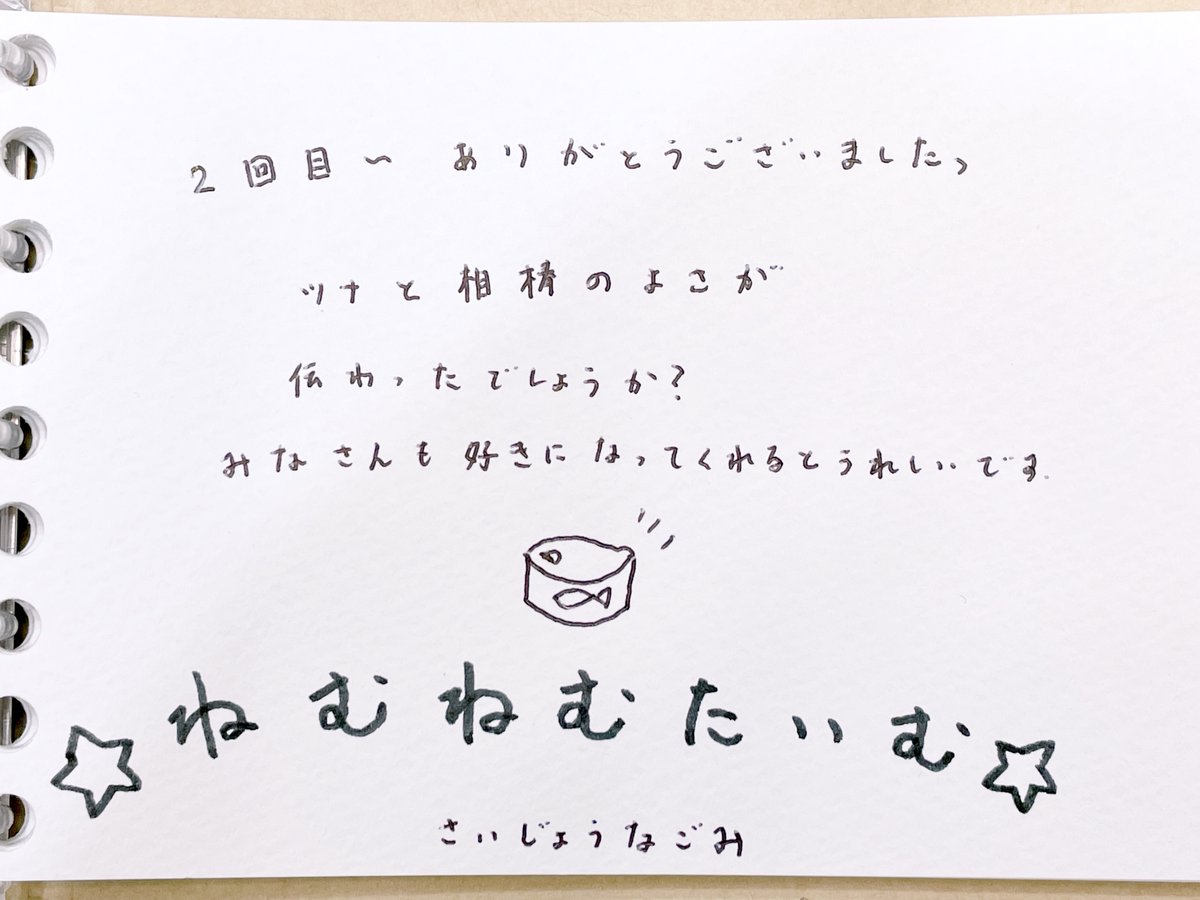 2回目〜 ありがとうございましたっ
ツナと相棒のよさが
伝わったでしょうか?
みなさんも好きになってくれるとうれしいです.
☆ねむねむたいむ☆
さいじょうなごみ